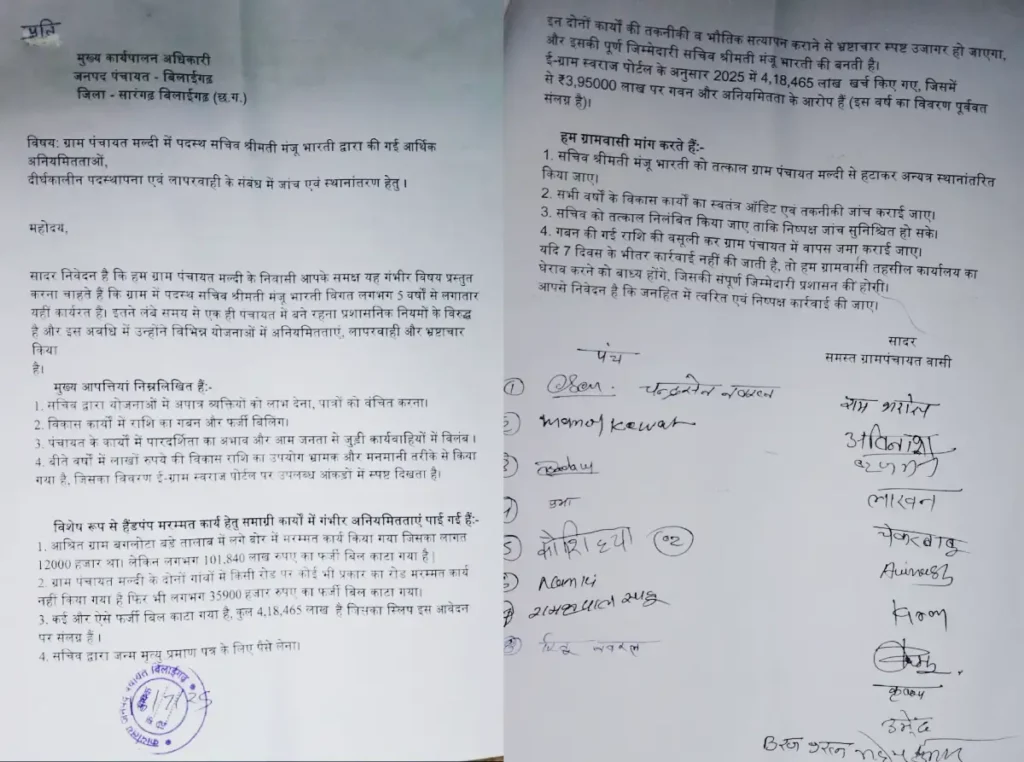 प्रति
मुख्य कार्यपालन अधिकारी
जनपद पंचायत - बिलाईगढ़
जिला - सारंगढ़ बिलाईगढ़ (छ.ग.)
विषय: ग्राम पंचायत मल्दी में पदस्थ सचिव श्रीमती मंजू भारती द्वारा की गई आर्थिक
अनियमितताओं,
दीर्घकालीन पदस्थापना एवं लापरवाही के संबंध में जांच एवं स्थानांतरण हेतु।
महोदय,
सादर निवेदन है कि हम ग्राम पंचायत मल्दी के निवासी आपके समक्ष यह गंभीर विषय प्रस्तुत
करना चाहते हैं कि ग्राम में पदस्थ सचिव श्रीमती मंजू भारती बिगत लगभग 5 वर्षों से लगातार
यहीं कार्यरत हैं। इतने लंबे समय से एक ही पंचायत में बने रहना प्रशासनिक नियमों के विरुद्ध
है और इस अवधि में उन्होंने विभिन्न योजनाओं में अनियमितताएं, लापरवाही और भ्रष्टाचार
किया
है।
मुख्य आपत्तियां निम्नलिखित हैं:-
1. सचिव द्वारा योजनाओं में अपात्र व्यक्तियों को लाभ देना, पात्रों को वंचित करना।
2. विकास कार्यों में राशि का गबन और फर्जी बिलिंग।
3. पंचायत के कार्यों में पारदर्शिता का अभाव और आम जनता से जुड़ी कार्यवाहियों में विलंब।
4. बीते वर्षों में लाखों रुपये की विकास राशि का उपयोग भ्रामक और मनमानी तरीके से किया
गया है, जिसका विवरण ई-ग्राम स्वराज पोर्टल पर उपलब्ध आंकड़ों में स्पष्ट दिखता है।
विशेष रूप से हैंडपंप मरम्मत कार्य हेतु समाग्री कार्यों में गंभीर अनियमितताएं पाई गई हैं:-
1. आश्रित ग्राम बगलोटा बड़े तालाब में लगे बोर में मरम्मत कार्य किया गया जिसका लागत
12000 हजार था। लेकिन लगभग 101.840 लाख रुपए का फर्जी बिल काटा गया है|
2. ग्राम पंचायत मल्दी के दोनों गांवों में किसी रोड पर कोई भी प्रकार का रोड मरम्मत कार्य
नहीं किया गया है फिर भी लगभग 35900 हजार रुपए का फर्जी बिल काटा गया।
3. कई और ऐसे फर्जी बिल काटा गया है, कुल 4,18,465 लाख है जिसका स्लिप इस आवेदन
पर संलग्न हैं।
4. सचिव द्वारा जन्म मृत्यु प्रमाण पत्र के लिए पैसे लेना।
इन दोनों कार्यों की तकनीकी व भौतिक सत्यापन कराने से भ्रष्टाचार स्पष्ट उजागर हो जाएगा,
और इसकी पूर्ण जिम्मेदारी सचिव श्रीमती मंजू भारती की बनती है।
ई-ग्राम स्वराज पोर्टल के अनुसार 2025 में 4,18,465 लाख खर्च किए गए, जिसमें
से ₹3,95000 लाख पर गबन और अनियमितता के आरोप हैं (इस वर्ष का विवरण पूर्ववत
संलग्न है)।
हम ग्रामवासी मांग करते हैं:-
1. सचिव श्रीमती मंजू भारती को तत्काल ग्राम पंचायत मल्दी से हटाकर अन्यत्र स्थानांतरित
किया जाए।
2. सभी वर्षों के विकास कार्यों का स्वतंत्र ऑडिट एवं तकनीकी जांच कराई जाए।
3. सचिव को तत्काल निलंबित किया जाए ताकि निष्पक्ष जांच सुनिश्चित हो सके।
4. गबन की गई राशि की वसूली कर ग्राम पंचायत में वापस जमा कराई जाए।
यदि 7 दिवस के भीतर कार्रवाई नहीं की जाती है, तो हम ग्रामवासी तहसील कार्यालय का
घेराव करने को बाध्य होंगे, जिसकी संपूर्ण जिम्मेदारी प्रशासन की होगी।
आपसे निवेदन है कि जनहित में त्वरित एवं निष्पक्ष कार्रवाई की जाए।
सादर
समस्त ग्रामपंचायत वासी
पंच
1 चन्द्रसेन
manoj kewat
उमा
अविनाश
लाखन
Avinash
किरण
उमेंद